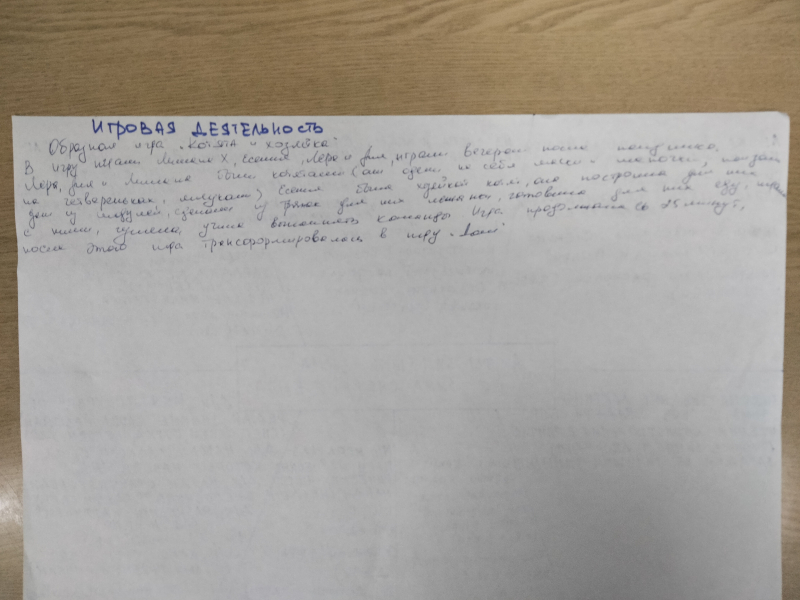 ИГРОВАЯ ДЕЯТЕЛЬНОСТЬ
Образная игра „Котята и хозяйка"
В игру играли Х, Есения, Лера и играли вечером после полдника.
Лера, и были котятами (они одели на себя маски и шапочки, ползали
на четвереньках, мяукали) Есения была хозяйкой она построила для них
дом из модулей, сделала из для них лежанки, готовила для них еду, играла
с ними, гуляла, учила выполнять команды Игра продолжалась 25 минут,
после этого игра трансформировалась в игру „